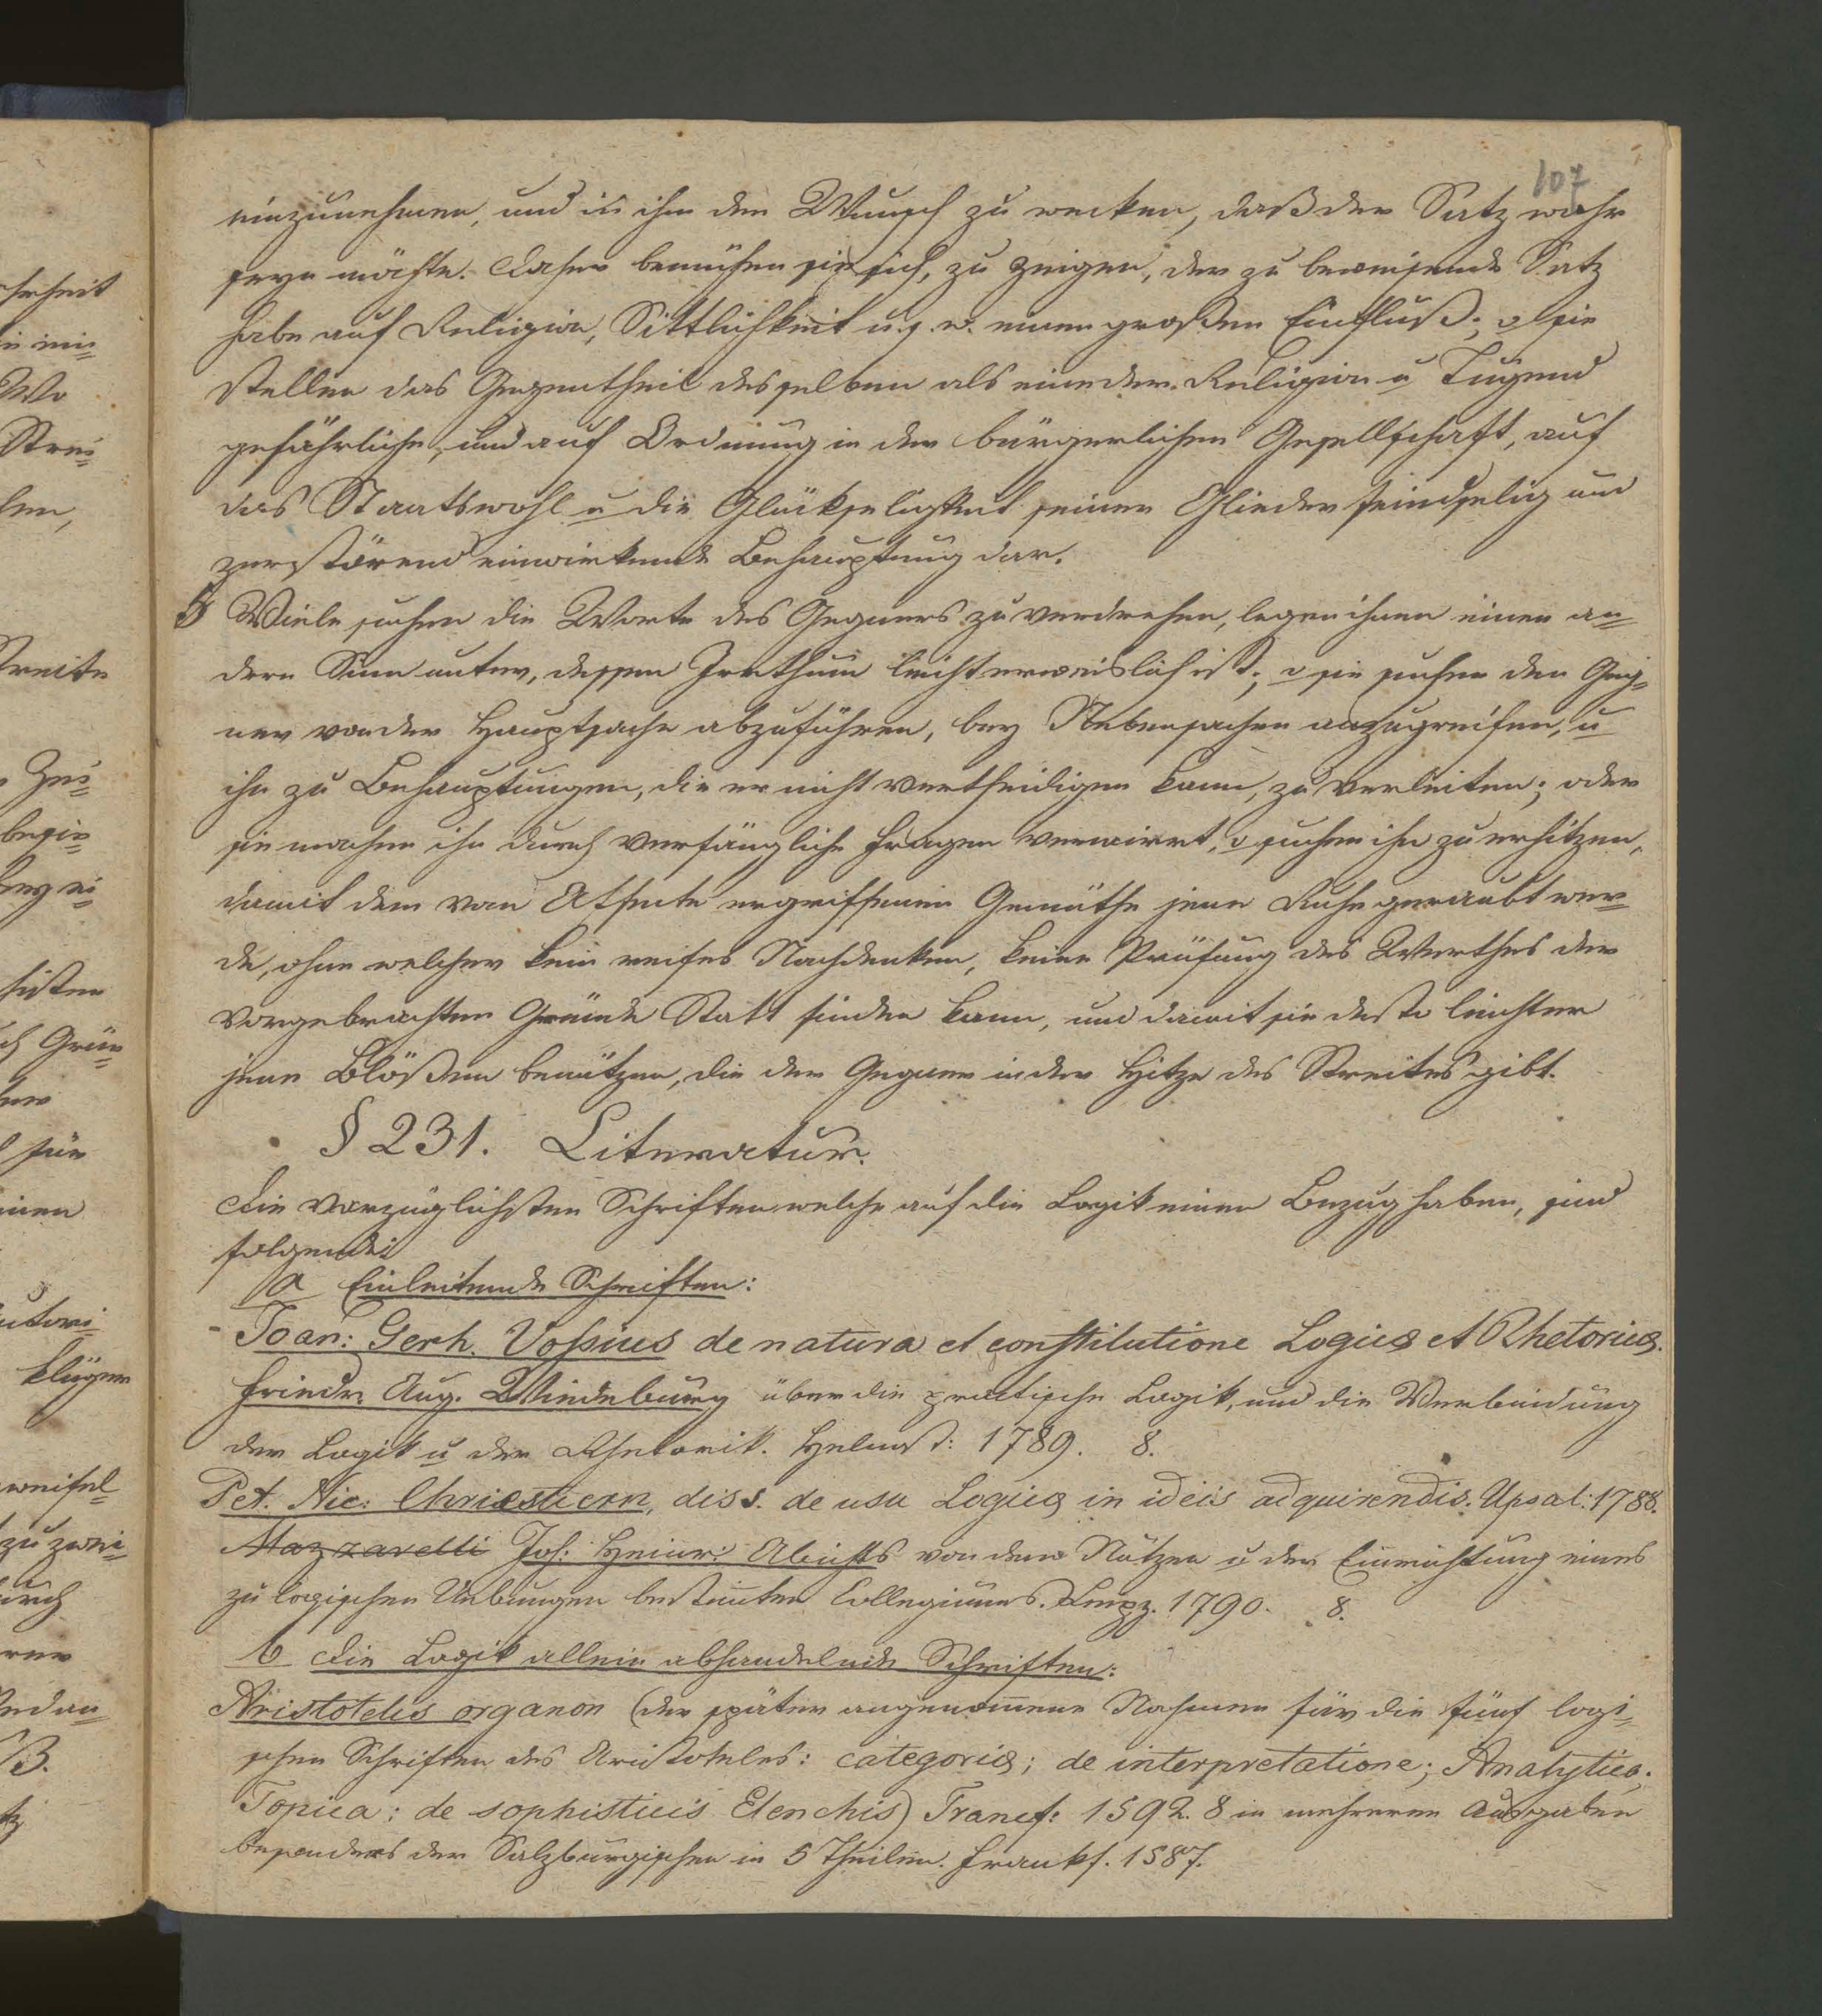 107
einzunehmen, und in ihm den Wunsch zu wecken, daß der Satz wahr
seyn möchte. Daher bemühen sie sich, zu zeigen, der zu beweisende Satz
habe auf Religion, Sittlichkeit u.s.w. einen großen Einfluß; o sie
stellen das Gegentheil desselben als eine der Religion u Tugend
gefährliche, und auf Ordnung in der bürgerlichen Gesellschaft, auf
das Staatswohl u die Glückseligkeit seiner Glieder feindselig und
zerstörend einwirkende Behauptung dar.
5 Viele suchen die Worte des Gegners zu verdrehen, legen ihnen einen an=
dern Sinn unter, dessen Irrthum leicht erweislich ist; o sie suchen den Geg=
ner von der Hauptsache abzuführen, bey Nebensachen anzugreifen, u
ihn zu Behauptungen, die er nicht vertheidigen kann, zu verleiten; oder
sie machen ihn durch verfängliche Fragen verwirrt, o suchen ihn zu erhitzen,
damit dem von Affecte ergriffenen Gemüthe jene Ruhe geraubt wer=
de, ohne welcher kein reifes Nachdenken, keine Prüfung des Werthes der
vorgebrachten Gründe Statt finden kann, und damit sie desto leichter
jene Blößen benützen, die der Gegner in der Hitze des Streites gibt.
§ 231. Literatur.
Die vorzüglichsten Schriften welche auf die Logik einen Bezug haben, sind
folgende:
a Einleitende Schriften:
Joan: Gerh. Vossius de natura et constitutione Logicæ et Rhetoricæ.
Friedr. Aug. Wiedeburg über die practische Logik, und die Verbindung
der Logik u der Rhetorik. Helmst: 1789. 8.
Pet. Nic. Christiern, diss. de usu Logicæ in ideis adquirendis. Upsal: 1788.
Mazzarelli Joh: Heinr: Abichts von dem Nutzen u der Einrichtung eines
zu logischen Uebungen bestimten Collegiums. Leipz. 1790. 8.
b Die Logik allein abhandelnde Schriften:
Aristotelis organon (der später angenomene Nahmen für die fünf logi=
schen Schriften des Aristoteles: categoriæ; de interpretatione; Analytica;
Topica; de sophisticis Elenchis) Francf: 1592. 8 in mehreren Ausgaben
besonders der Salzburgischen in 5 Theilen. Frankf. 1587.